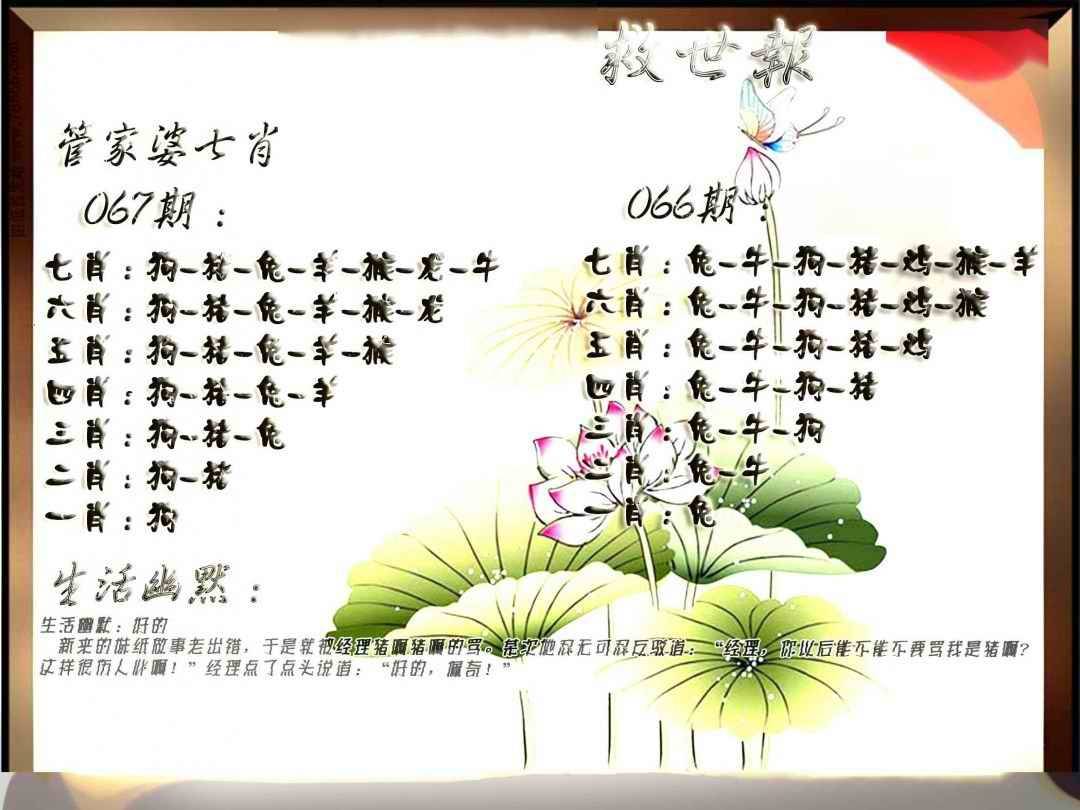 救世報
管家婆七肖
067期：
七肖：狗-猪-兔-羊-猴-龙-牛
六肖：狗-猪-兔-羊-猴-龙
五肖：狗-猪-兔-羊-猴
四肖：狗-猪-兔-羊
三肖：狗-猪-兔
二肖：狗-猪
一肖：狗
066期：
七肖：兔-牛-狗-猪-鸡-猴-羊
六肖：兔-牛-狗-猪-鸡-猴
五肖：兔-牛-狗-猪-鸡
四肖：兔-牛-狗-猪
三肖：兔-牛-狗
二肖：兔-牛
一肖：兔
生活幽默：
生活幽默：好的
新来的妹纸做事老出错，于是就被经理猪啊猪啊的骂。某次他忍无可忍反驳道：“经理，你以后能不能不要骂我是猪啊？
这样很伤人心啊！”经理点了点头说道：“好的，佩奇！”